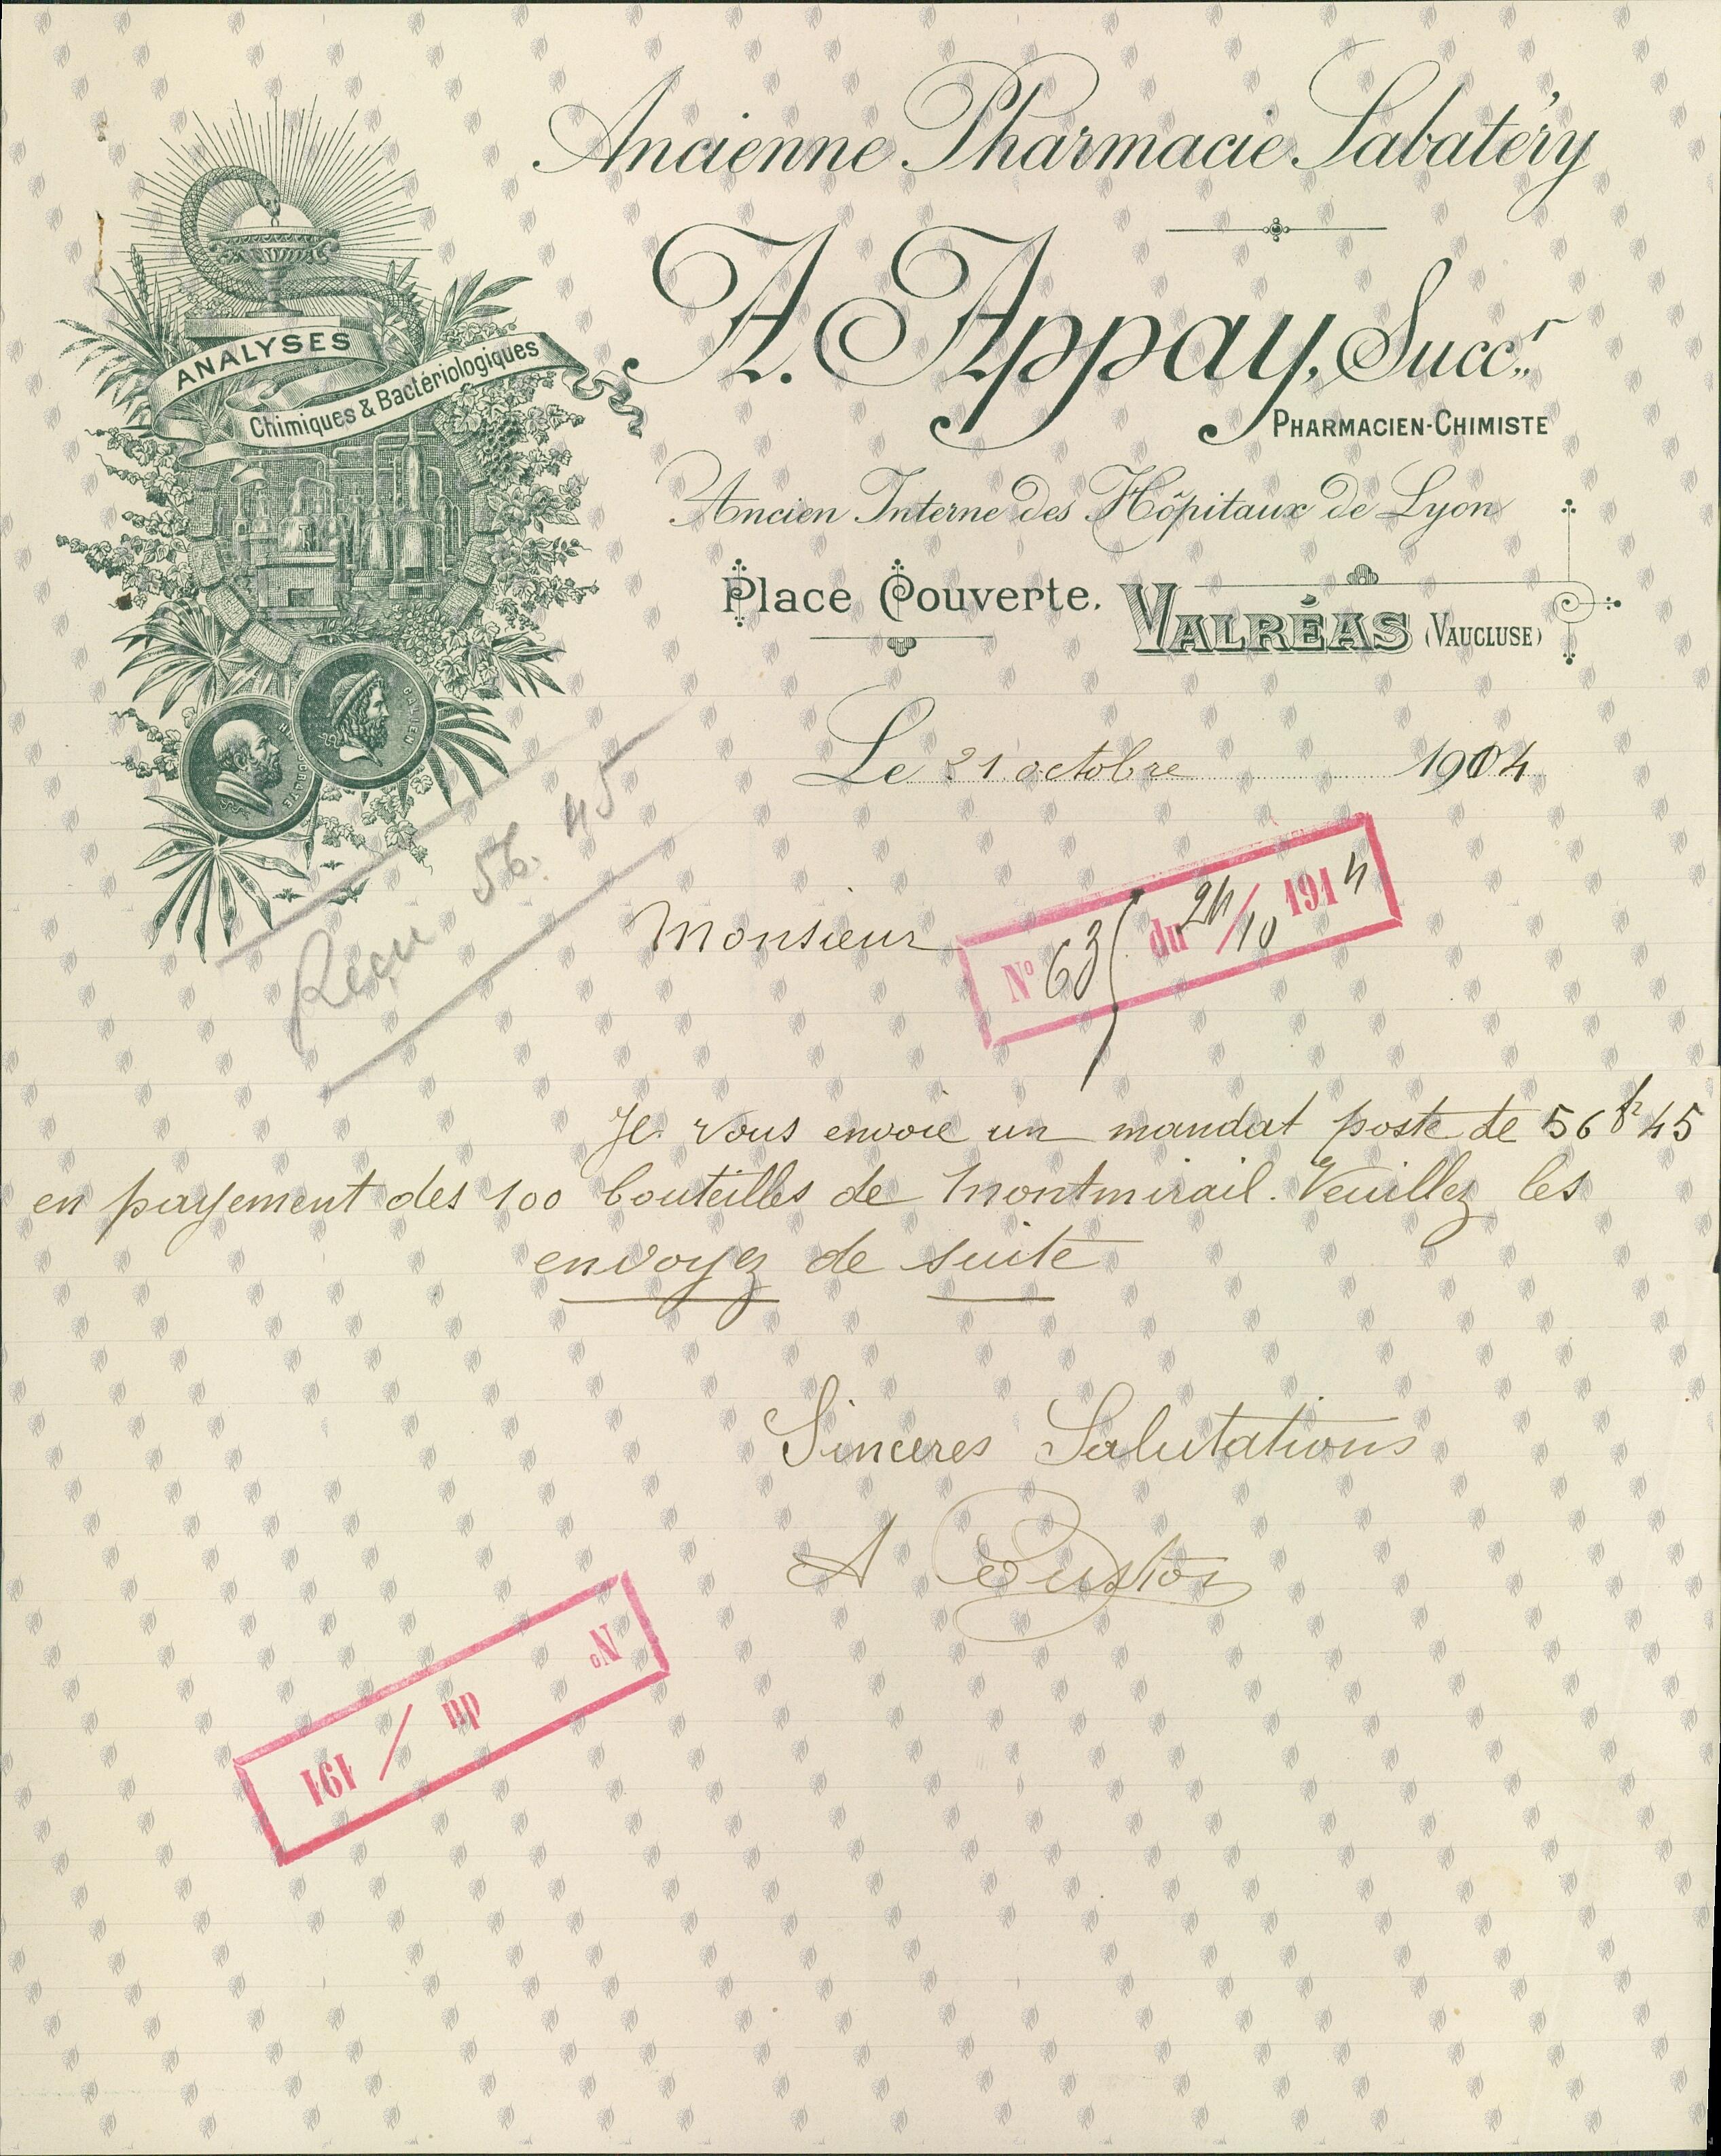 Ancienne Pharmacie Sabatéry
A. Appay, Succr
PHARMACIEN-CHIMISTE
ANALYSES
Chimiques & Bactériologiques
Ancien Interne des Hôpitaux de Lyon
Place Couverte. VALRÉAS (VAUCLUSE)
GALIEN
HIPPOCRATE
Le 21 octobre 1914
Reçu 56. 45
Monsieur
No 63 du 24/10 1914
Je vous envoie un mandat poste de 56 fr 45
en payement des 100 bouteilles de Montmirail. Veuillez les
envoyez de suite
Sinceres Salutations
A
No du / 191